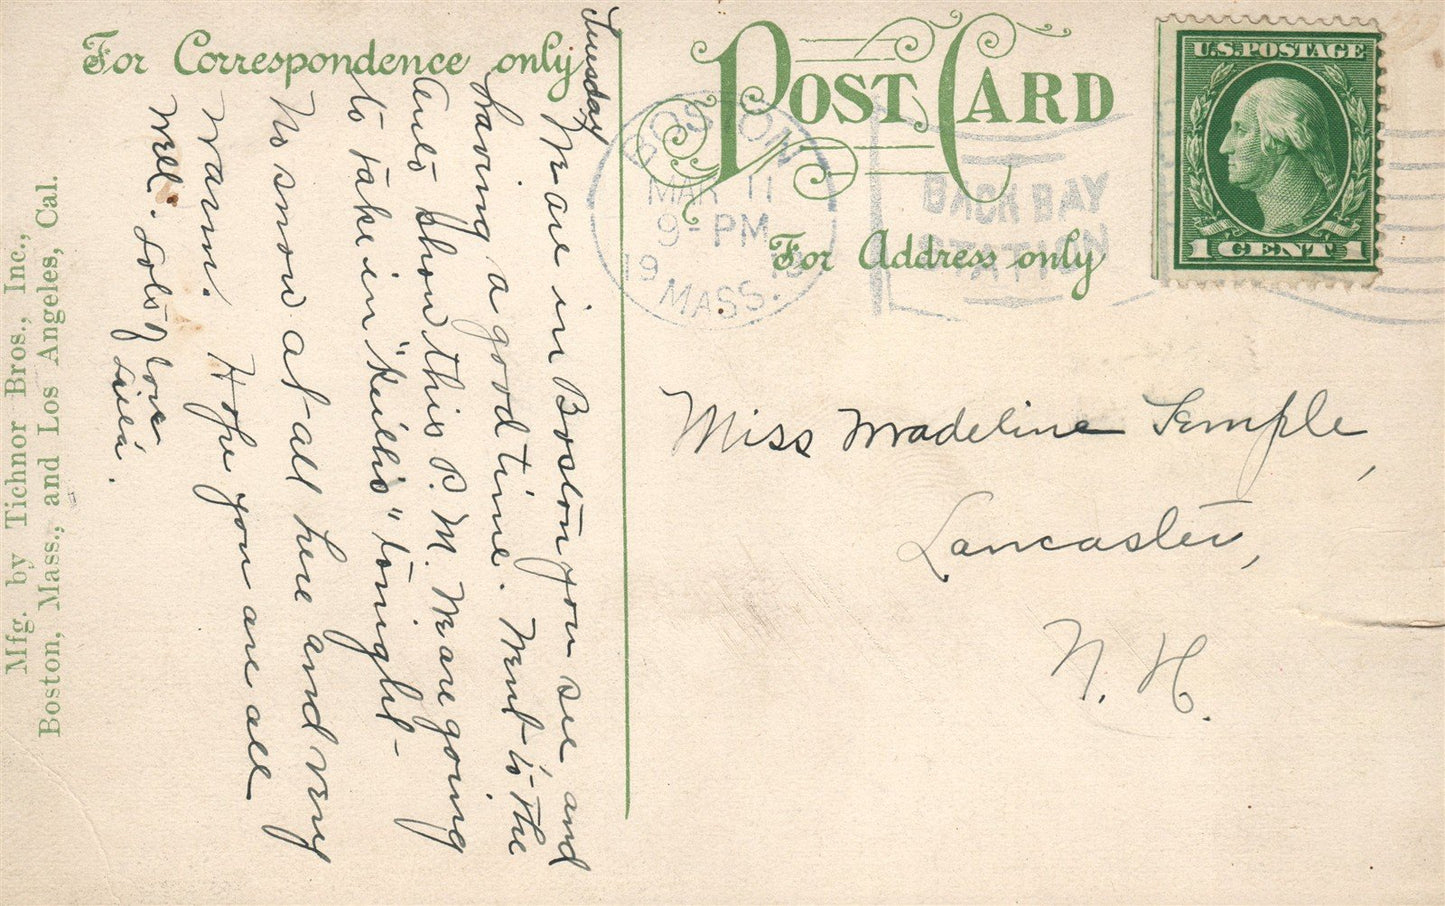 For Correspondence only
POST CARD
For Address only
U.S. POSTAGE
1 CENT 1
BOSTON
MAR 11
9- PM
19 13
MASS.
BACK BAY
STATION
Tuesday
We are in Boston you see and
having a good time. Went to the
Auto show this P.M. We are going
to take in "Keith's" tonight-
No snow at all here and very
warm. Hope you are all
well. Lots of love
Miss Madeline Temple,
Lancaster,
N. H.
Mfg. by Tichnor Bros., Inc.,
Boston, Mass., and Los Angeles, Cal.